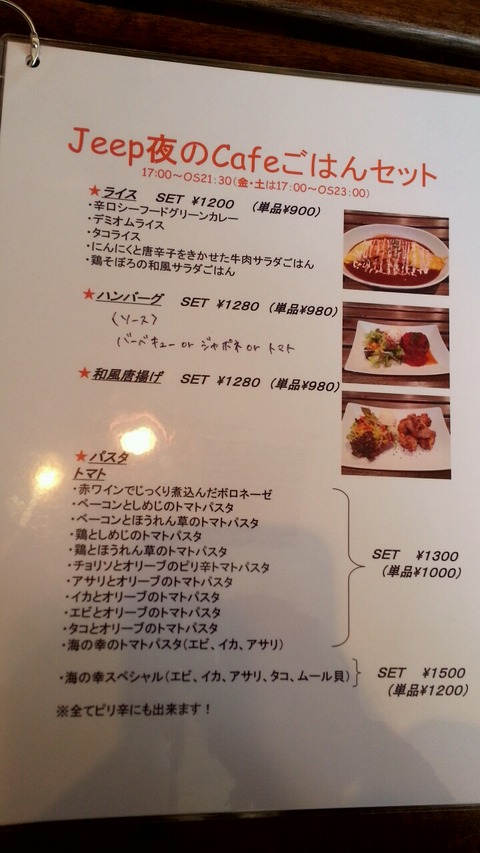 Jeep夜のCafeごはんセット
17:00～OS21:30(金・土は17:00～OS23:00)
★ライス SET ¥1200 (単品¥900)
・辛口シーフードグリーンカレー
・デミオムライス
・タコライス
・にんにくと唐辛子をきかせた牛肉サラダごはん
・鶏そぼろの和風サラダごはん
★ハンバーグ SET ¥1280 (単品¥980)
〈ソース〉
バーベキュー or ジャポネ or トマト
★和風唐揚げ SET ¥1280 (単品¥980)
★パスタ
トマト
・赤ワインでじっくり煮込んだボロネーゼ
・ベーコンとしめじのトマトパスタ
・ベーコンとほうれん草のトマトパスタ
・鶏としめじのトマトパスタ
・鶏とほうれん草のトマトパスタ
・チョリソとオリーブのピリ辛トマトパスタ
・アサリとオリーブのトマトパスタ
・イカとオリーブのトマトパスタ
・エビとオリーブのトマトパスタ
・タコとオリーブのトマトパスタ
・海の幸のトマトパスタ(エビ、イカ、アサリ)
SET ¥1300
(単品¥1000)
・海の幸スペシャル(エビ、イカ、アサリ、タコ、ムール貝)
SET ¥1500
(単品¥1200)
※全てピリ辛にも出来ます！